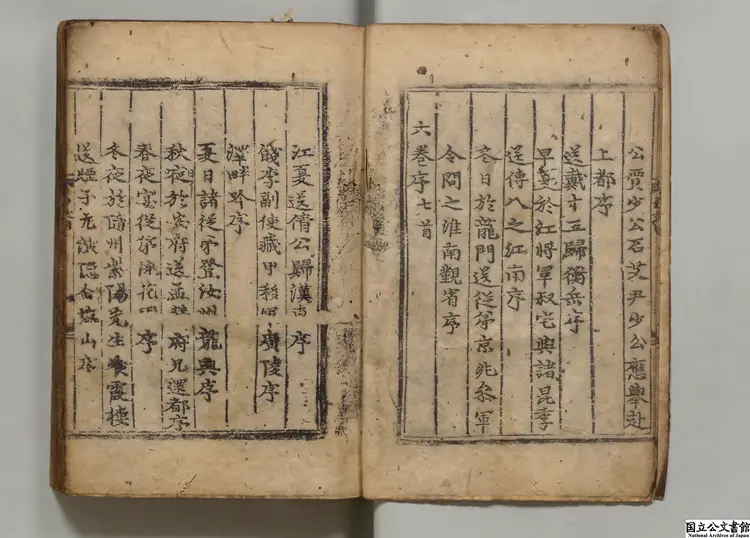 公賈少公石艾尹少公應舉赴
上都序
送戴十五歸衡岳序
早夏於江將軍叔宅與諸昆季
送傅八之江南序
冬日於龍門送從弟京兆參軍
令問之淮南覲省序
六卷序七首
江夏送倩公歸漢東序
餞李副使藏用移軍廣陵序
澤畔吟序
夏日諸從弟登汝州龍興序
秋夜於安府送孟贊府兄還都序
春夜宴從弟桃花 序
冬夜於隨州紫陽先生飡霞樓
送煙子元演隱仙城山序
国立公文書館
National Archives of Japan